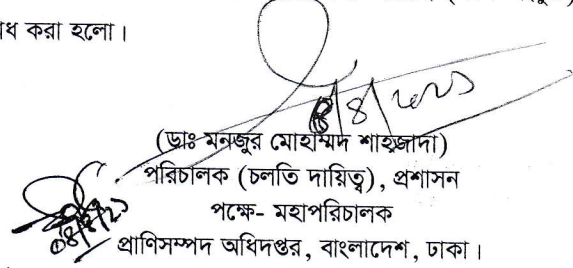 ধ করা হলো।
(ডাঃ মনজুর মোহাম্মদ শাহজাদা)
পরিচালক (চলতি দায়িত্ব), প্রশাসন
পক্ষে- মহাপরিচালক
প্রাণিসম্পদ অধিদপ্তর, বাংলাদেশ, ঢাকা।